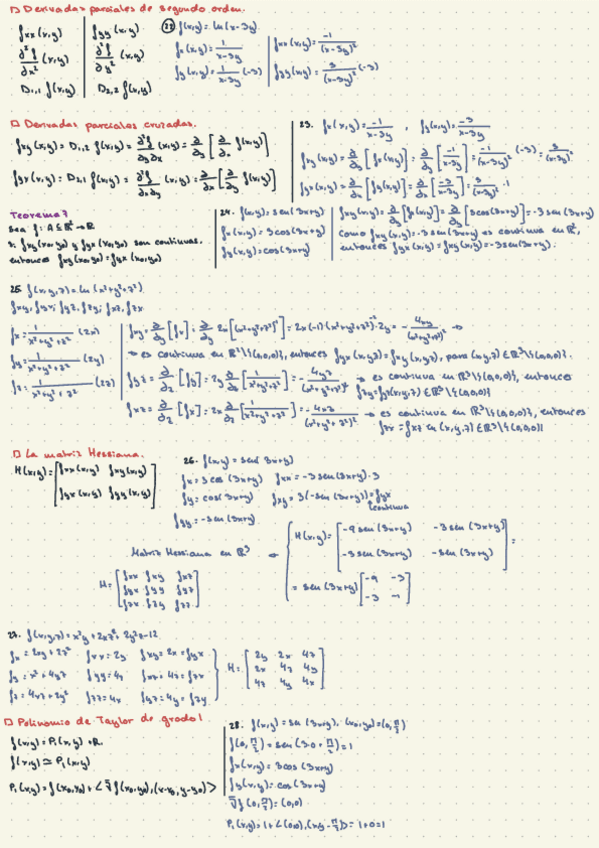 □ Derivadas parciales de segundo orden.
fxx(x,y) fyy(x,y)
∂²f/∂x² (x,y) ∂²f/∂y² (x,y)
D1,1 f(x,y) D2,2 f(x,y)
22 f(x,y) = ln(x-3y)
fx(x,y) = 1/(x-3y) fxx(x,y) = -1/(x-3y)²
fy(x,y) = 1/(x-3y) (-3) fyy(x,y) = 3/(x-3y)² (-3)
□ Derivadas parciales cruzadas.
fxy(x,y) = D1,2 f(x,y) = ∂²f/∂y∂x (x,y) = ∂/∂y [∂/∂x f(x,y)]
fyx(x,y) = D2,1 f(x,y) = ∂²f/∂x∂y (x,y) = ∂/∂x [∂/∂y f(x,y)]
23. fx(x,y) = 1/(x-3y) , fy(x,y) = -3/(x-3y)
fxy(x,y) = ∂/∂y [fx(x,y)] = ∂/∂y [1/(x-3y)] = -1/(x-3y)² (-3) = 3/(x-3y)²
fyx(x,y) = ∂/∂x [fy(x,y)] = ∂/∂x [-3/(x-3y)] = 3/(x-3y)² ·1
Teorema 7
Sea f: A⊆R² → R
si fxy(x0,y0) y fyx(x0,y0) son continuas.
entonces fxy(x0,y0) = fyx(x0,y0)
24. f(x,y) = sen(3x+y)
fx(x,y) = 3cos(3x+y)
fy(x,y) = cos(3x+y)
fxy(x,y) = ∂/∂y [fx(x,y)] = ∂/∂y [3cos(3x+y)] = -3sen(3x+y)
Como fxy(x,y) = -3sen(3x+y) es continua en R²,
entonces fyx(x,y) = fxy(x,y) = -3sen(3x+y).
25. f(x,y,z) = ln(x²+y²+z²)
fxy, fyx; fyz, fzy; fxz, fzx
fx = 1/(x²+y²+z²) (2x)
fy = 1/(x²+y²+z²) (2y)
fz = 1/(x²+y²+z²) (2z)
fxy = ∂/∂y [fx] = ∂/∂y 2x[(x²+y²+z²)⁻¹] = 2x(-1)(x²+y²+z²)⁻²·2y = -4xy/(x²+y²+z²)² →
→ es continua en R³\{(0,0,0)}, entonces fyx(x,y,z) = fxy(x,y,z), para (x,y,z) ∈ R³\{(0,0,0)}.
fyz = ∂/∂z [fy] = 2y ∂/∂z [1/(x²+y²+z²)] = -4yz/(x²+y²+z²)² → es continua en R³\{(0,0,0)}, entonces
fzy = fyz(x,y,z) ∈ R³\{(0,0,0)}
fxz = ∂/∂z [fx] = 2x ∂/∂z [1/(x²+y²+z²)] = -4xz/(x²+y²+z²)² → es continua en R³\{(0,0,0)}, entonces
fzx = fxz en (x,y,z) ∈ R³\{(0,0,0)}
□ La matriz Hessiana.
H(x,y) = [fxx(x,y) fxy(x,y)
fyx(x,y) fyy(x,y)]
26. f(x,y) = sen(3x+y)
fx = 3cos(3x+y) fxx = -3sen(3x+y)·3
fy = cos(3x+y) fxy = 3(-sen(3x+y)) = fyx
continua
fyy = -sen(3x+y)
H(x,y) = [-9sen(3x+y) -3sen(3x+y)
-3sen(3x+y) -sen(3x+y)] =
= sen(3x+y) [-9 -3
-3 -1]
Matriz Hessiana en R³ →
H = [fxx fxy fxz
fyx fyy fyz
fzx fzy fzz]
27. f(x,y,z) = x²y + 2xz² + 2y²z - 12
fx = 2xy + 2z² fxx = 2y fxy = 2x = fyx
fy = x² + 4yz fyy = 4z fxz = 4z = fzx
fz = 4xz + 2y² fzz = 4x fyz = 4y = fzy
H = [2y 2x 4z
2x 4z 4y
4z 4y 4x]
□ Polinomio de Taylor de grado 1
f(x,y) = P1(x,y) + R1
f(x,y) ≃ P1(x,y)
P1(x,y) = f(x0,y0) + <∇f(x0,y0), (x-x0, y-y0)>
28. f(x,y) = sen(3x+y), (x0,y0) = (0, π/2)
f(0, π/2) = sen(3·0 + π/2) = 1
fx(x,y) = 3cos(3x+y)
fy(x,y) = cos(3x+y)
∇f(0, π/2) = (0,0)
P1(x,y) = 1 + <(0,0), (x,y-π/2)> = 1+0 = 1